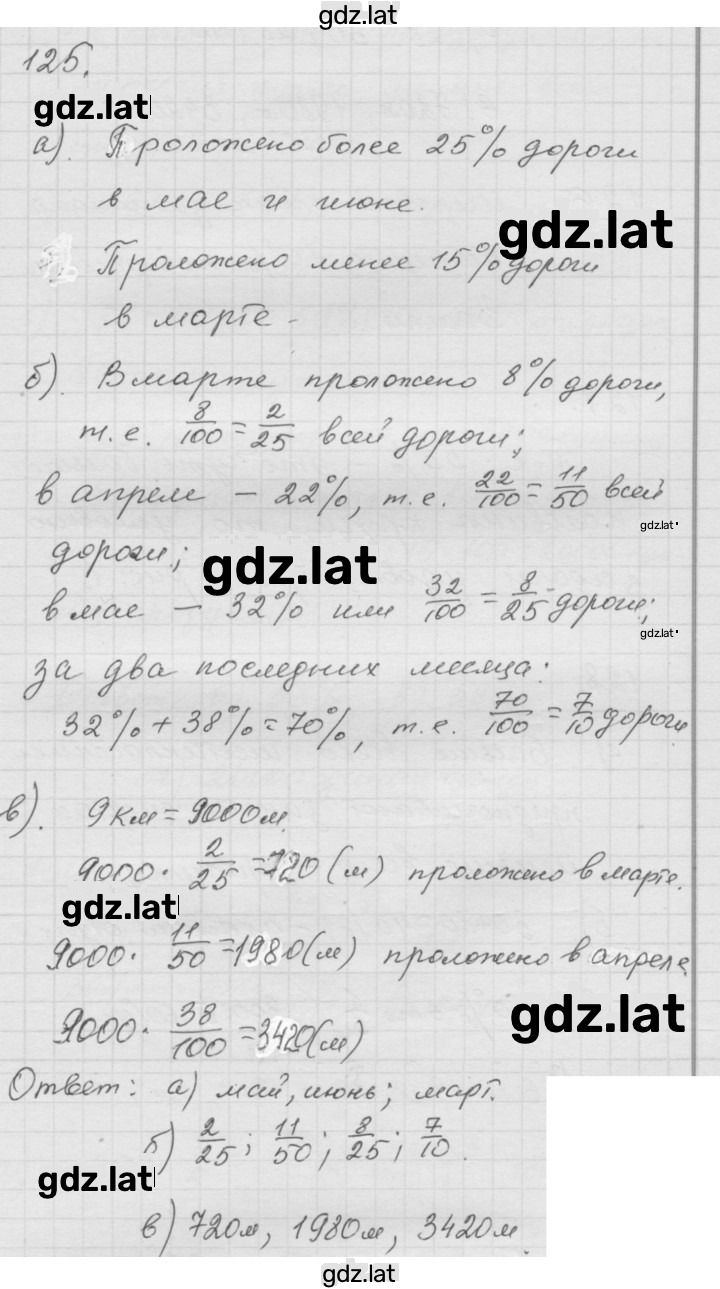 gdz.lat
125.
gdz.lat
а). Проложено более 25% дороги
в мае и июне.
gdz.lat
Проложено менее 15% дороги
в марте.
б). В марте проложено 8% дороги,
т.е. 8/100 = 2/25 всей дороги;
в апреле – 22%, т.е. 22/100 = 11/50 всей
gdz.lat
дороги;
gdz.lat
в мае – 32% или 32/100 = 8/25 дороги;
gdz.lat
за два последних месяца:
32% + 38% = 70%, т.е. 70/100 = 7/10 дороги
в). 9км = 9000м.
9000 · 2/25 = 720 (м) проложено в марте.
gdz.lat
9000 · 11/50 = 1980 (м) проложено в апреле
gdz.lat
9000 · 38/100 = 3420 (м)
Ответ: а) май, июнь; март.
б) 2/25; 11/50; 8/25; 7/10.
gdz.lat
в) 720м, 1980м, 3420м.
gdz.lat